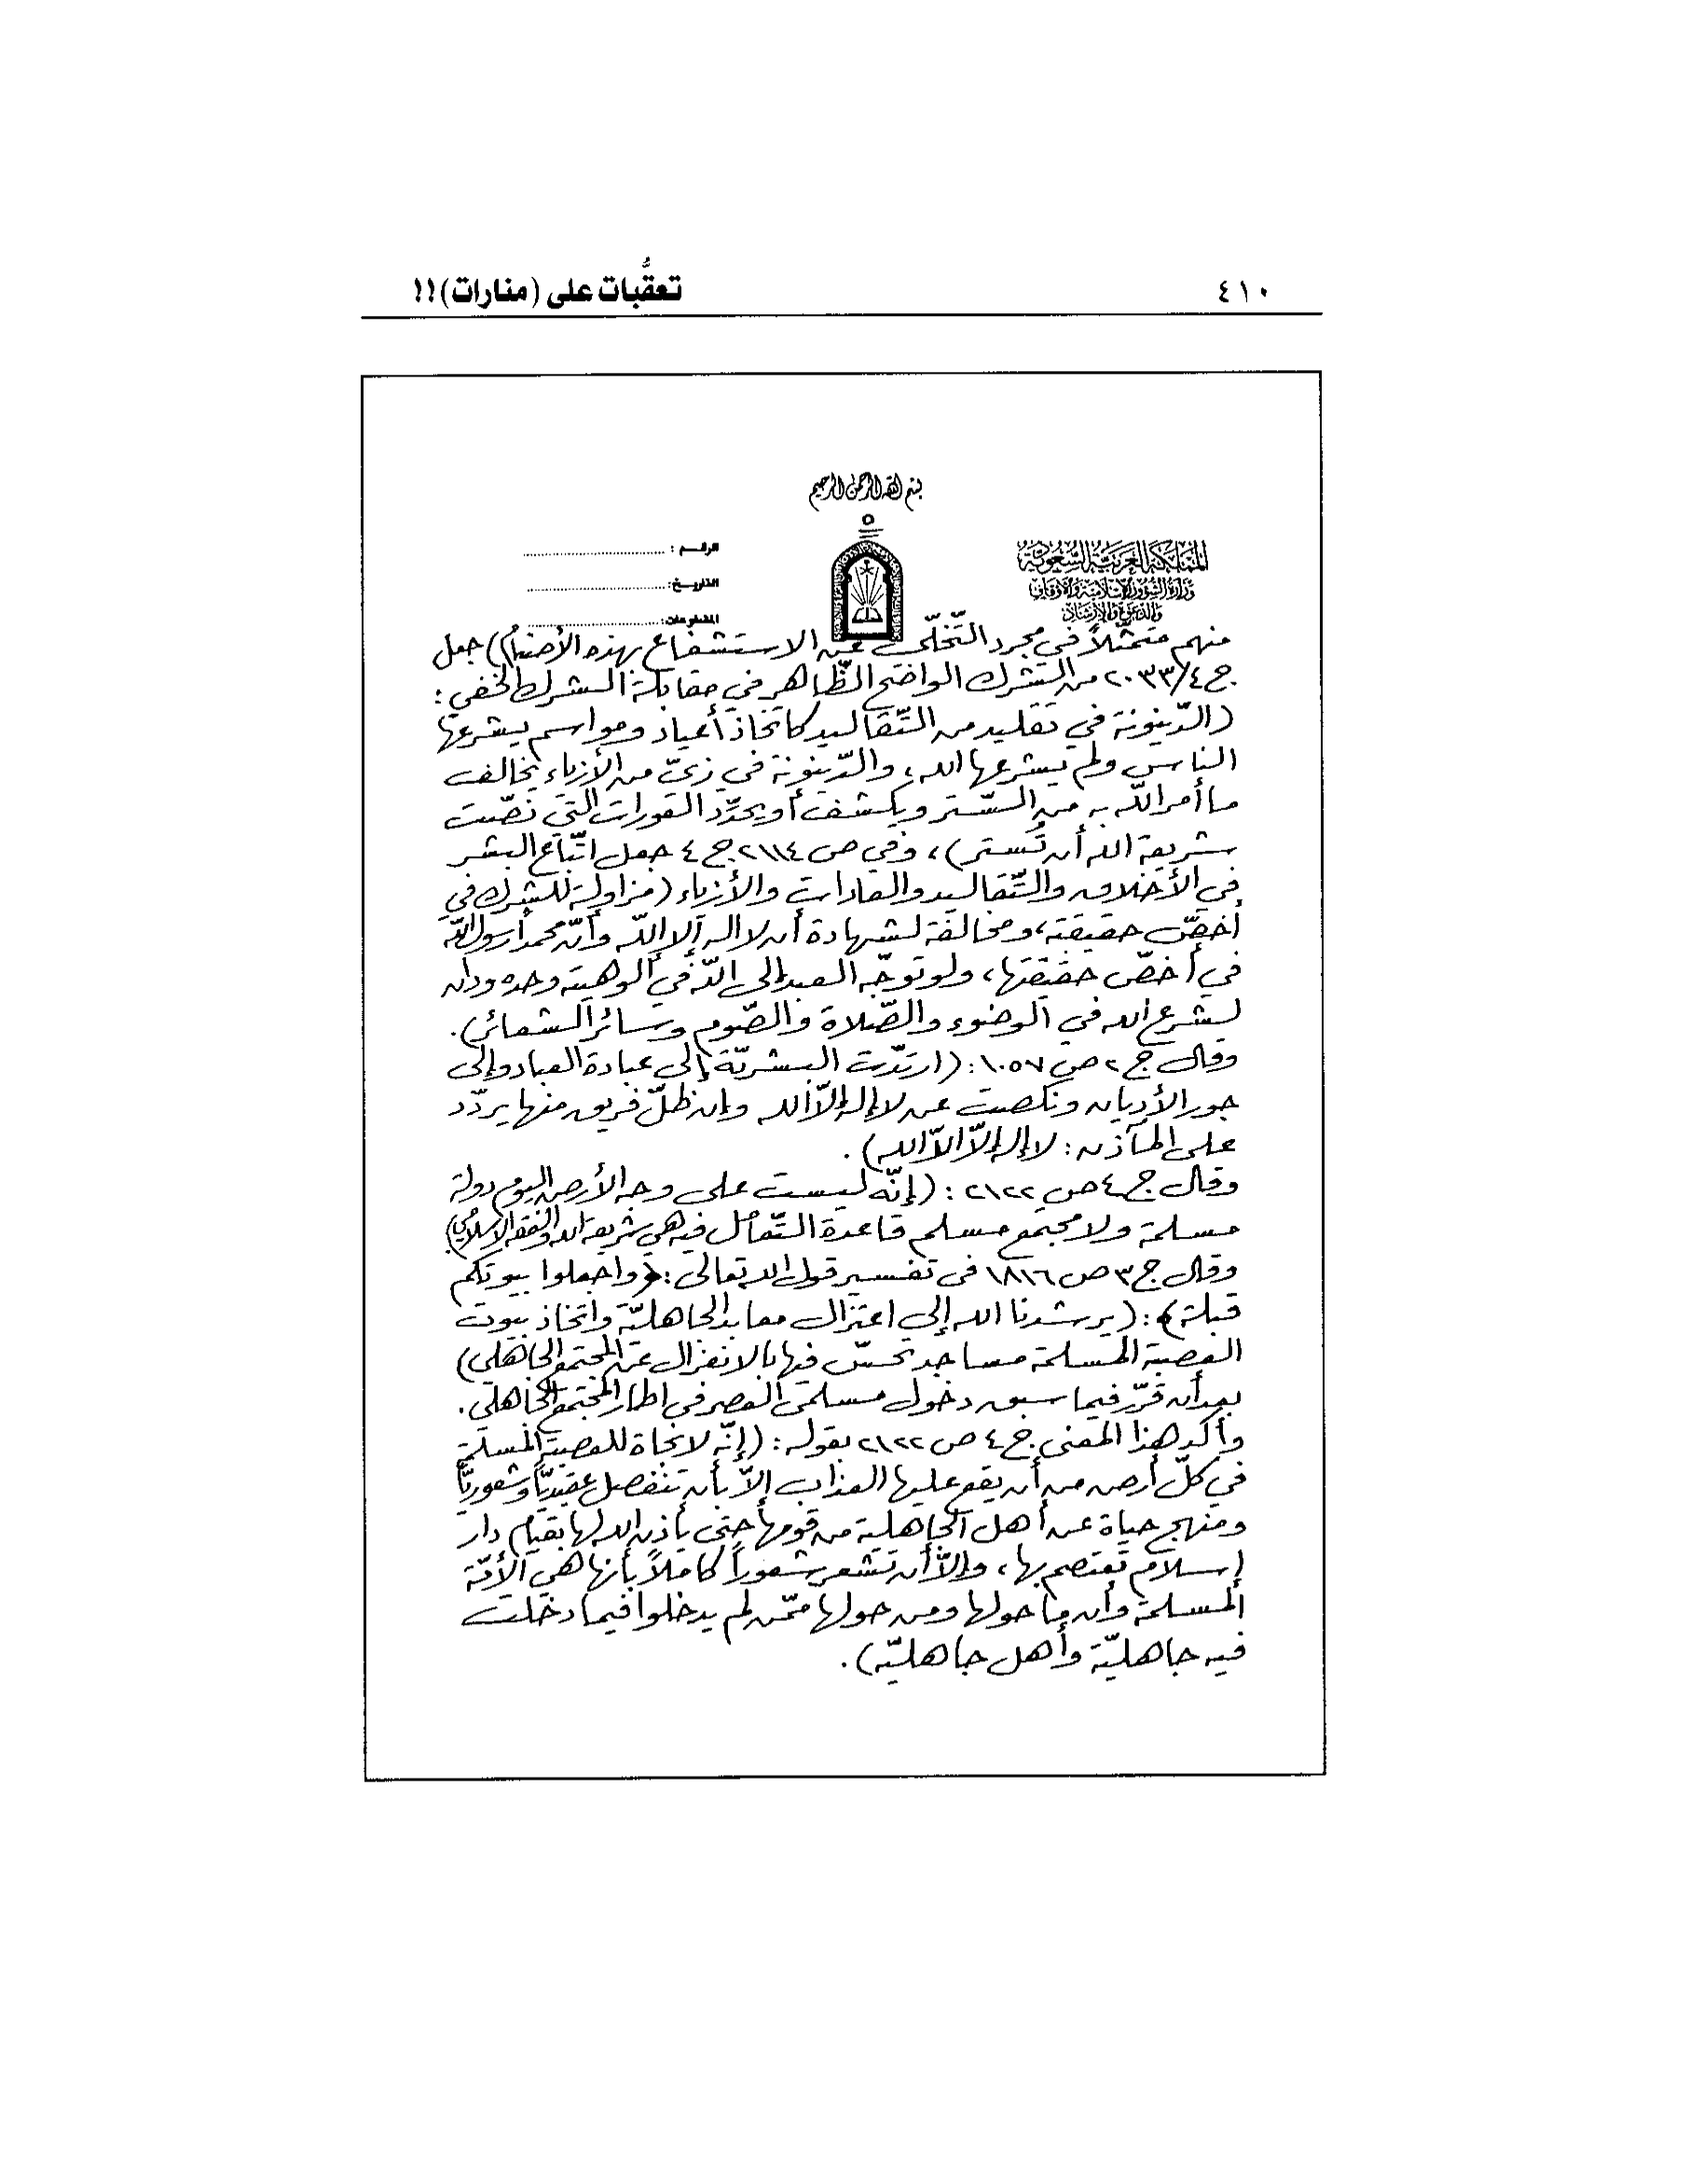 ٤١٠
تعقُّبات على (منارات)!!
بسم الله الرحمن الرحيم
٥
المملكة العربية السعودية
وزارة الشؤون الإسلامية والأوقاف
والدعوة والإرشاد
الرقم :
التاريخ :
المشفوعات :
منهم متمثّلاً في مجرد التّخلّي عن الاستشفاع بهذه الأصنام) جعل
ج٤/٢٠٣٣ من الشرك الواضح الظّاهر في مقابلة الشرك الخفي :
(الدّينونة في تقليد من التّقاليد كاتخاذ أعياد ومواسم يشرعها
الناس ولم يشرعها الله، والدّينونة في زيّ من الأزياء يخالف
ما أمر الله به من السّتر ويكشف أو يحدّد العورات التي نصّت
شريعة الله أن تُستر)، وفي ص ٢١١٤ ج ٤ جعل اتّباع البشر
في الأخلاق والتّقاليد والعادات والأزياء (مزاولة للشرك في
أخصّ حقيقته، ومخالفة لشهادة أن لا إله إلا الله وأنّ محمداً رسول الله
في أخصّ حقيقتها، ولو توجّه العبد إلى الله في ألوهيته وحده ودان
لشرع الله في الوضوء والصّلاة والصّوم وسائر الشعائر).
وقال ج ٢ ص ١٠٥٧ : (ارتدّت البشريّة إلى عبادة العباد وإلى
جور الأديان ونكصت عن لا إله إلاّ الله وإن ظلّ فريق منها يردّد
على المآذن : لا إله إلاّ الاّ الله) .
وقال ج ٤ ص ٢١٢٢ : (إنّه ليست على وجه الأرض اليوم دولة
مسلمة ولا مجتمع مسلم قاعدة التّعامل فيه هي شريعة الله والفقه الإسلامي)
وقال ج ٣ ص ١٨١٦ في تفسير قول الله تعالى : ﴿واجعلوا بيوتكم
قبلة﴾ : (يرشدنا الله إلى اعتزال معابد الجاهليّة واتخاذ بيوت
العصبة المسلمة مساجد تحسّ فيها بالانعزال عن المجتمع الجاهلي)
بعد أن قرّر فيما سبق دخول مسلمي العصر في اطار المجتمع الجاهلي .
وأكد هذا المعنى ج ٤ ص ٢١٢٢ بقوله : (إنّه لا نجاة للعصبة المسلمة
في كلّ أرض من أن يقع عليها العذاب إلاّ بأن تنفصل عقيديّاً وشعوريّاً
ومنهج حياة عن أهل الجاهلية من قومها حتى يأذن الله لها بقيام دار
إسلام تعتصم بها، وإلاّ أن تشعر شعوراً كاملاً بأنها هي الأمّة
المسلمة وأن ما حولها ومن حولها ممّن لم يدخلوا فيما دخلت
فيه جاهليّة وأهل جاهليّة) .